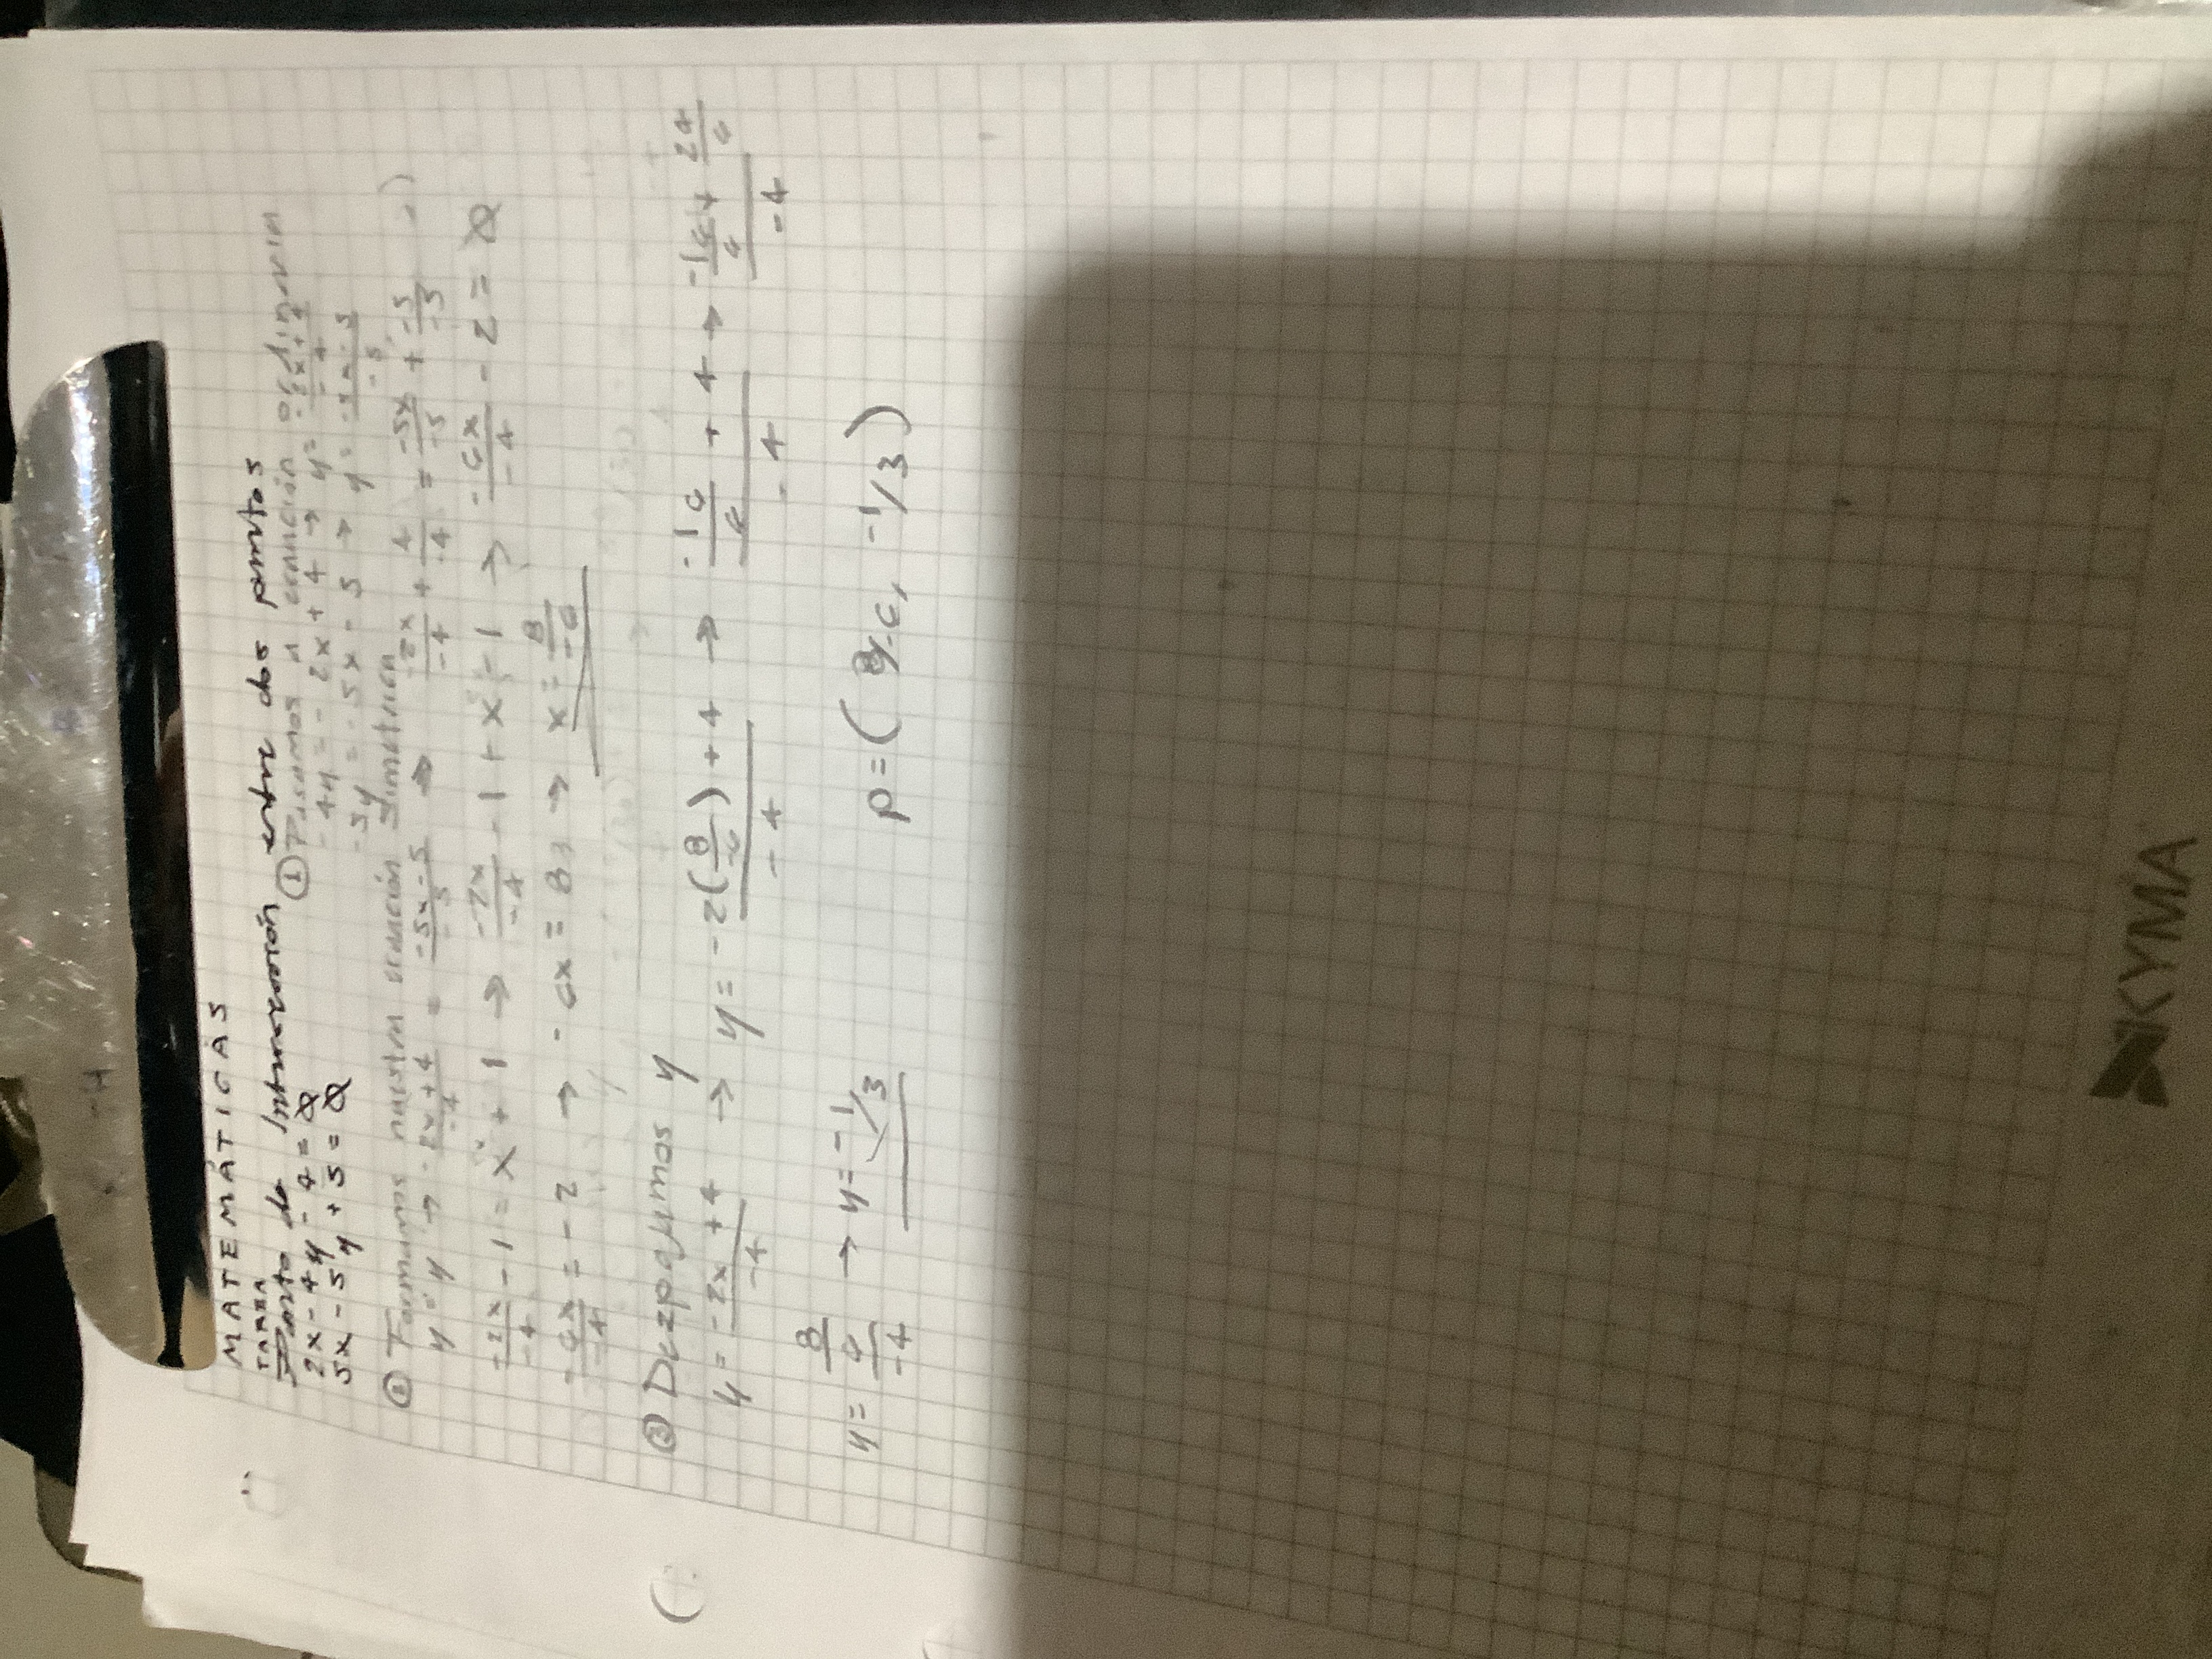 MATEMÁTICAS
TAREA
Punto de Intersección entre dos puntos
2x - 4y - 4 = 0
5x - 5y + 5 = 0
① Pasamos a ecuación ordinaria
-4y = -2x + 4 → y = -2x + 4 / -4
-5y = -5x - 5 → y = -5x - 5 / -5
② Formamos nuestra ecuación simetrica
y = y → -2x + 4 / -4 = -5x - 5 / -5 → -2x / -4 + 4 / -4 = -5x / -5 + -5 / -5
-2x / -4 - 1 = x + 1 → -2x / -4 - 1 + x = 1 → -6x / -4 - 2 = 0
-6x / -4 = -2 → -6x = 8 → x = 8 / -6
③ Dezpejumos y
y = -2x + 4 / -4 → y = -2(8 / -6) + 4 / -4 → -16 / 6 + 4 / -4 → -16 / 6 + 24 / 6 / -4
y = 8 / 6 / -4 → y = -1/3
P = (8/-6, -1/3)
KYMA